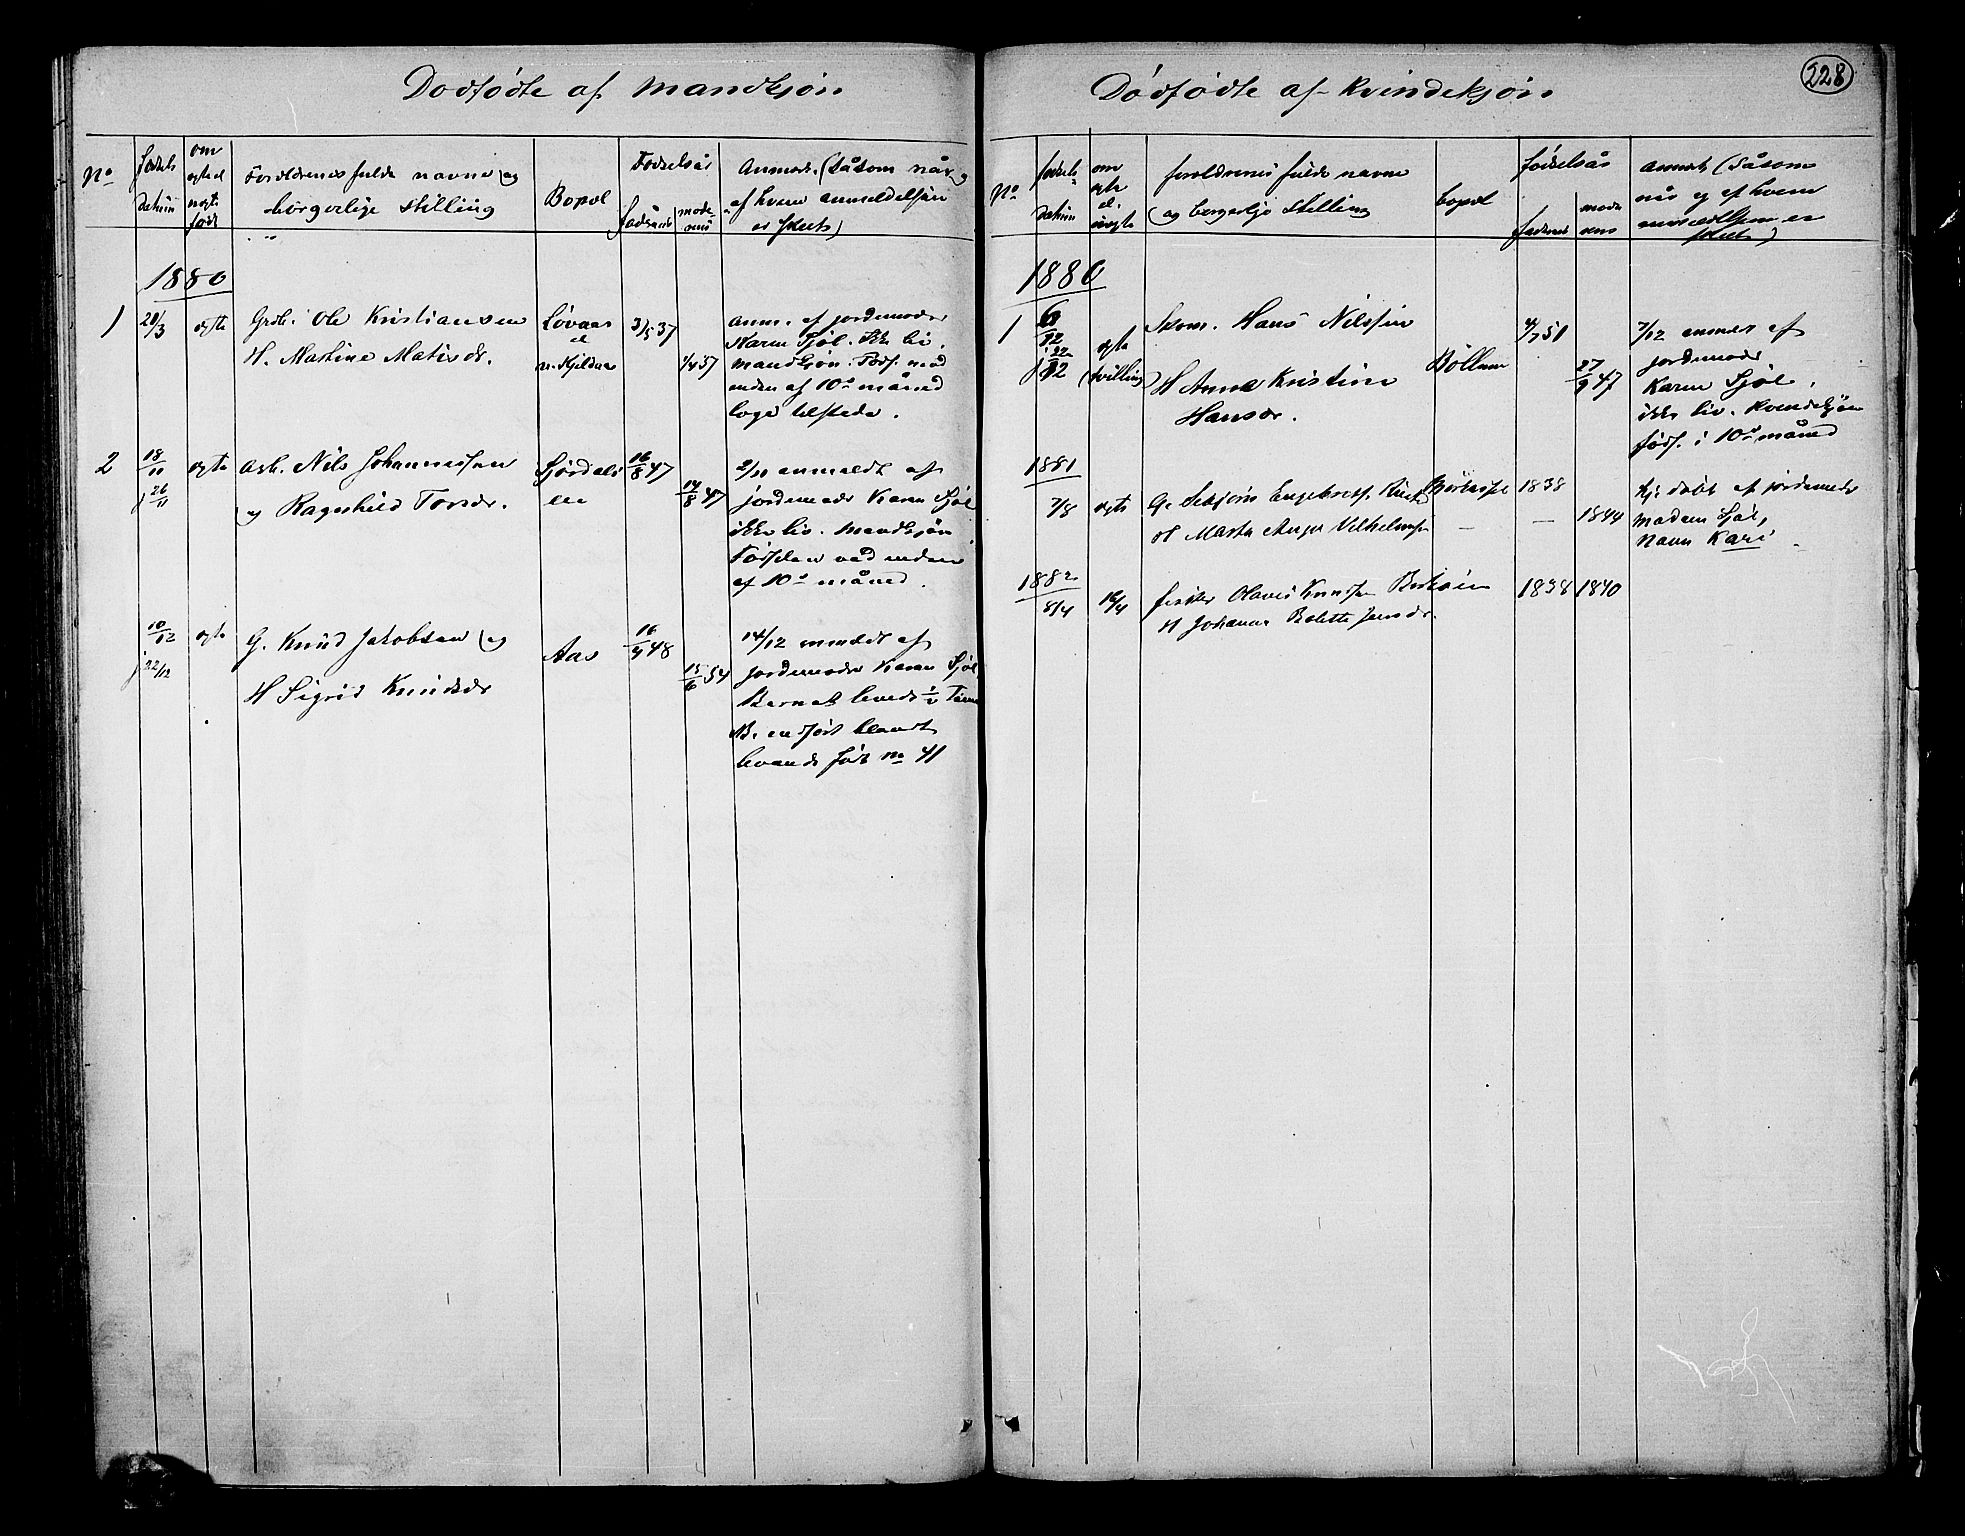 Dødfødte af Mandkjøn
No
fødsels
datum
om
ægte el
uægte
født
Forældrenes fulde navne og
borgerlige Stilling
Bopæl
Fødselsår
faderens
moderens
Anmærk. (såsom når og
af hvem anmeldelsen
er skeet)
1880
1
20/3
ægte
Grdb. Ole Kristiansen
H. Martine Matisdr.
Løvaas
3/5 37
1/4 37
anm. af jordemoder
Karen Sjøl. Ikke liv.
mandkjøn. Føds. ved
enden af 10de måned
læge tilstede.
2
18/11
j 26/11
ægte
Arb. Nils Johannessen
og Ragnhild Torsdr.
16/8 47
14/8 47
2/11 anmeldt af
jordemoder Karen Sjøl
ikke liv. Mandkjøn
Fødselen ved enden
af 10de måned.
10/12
j 22/12
ægte
G. Knud Jakobsen og
H Sigrid Knudsdr
Aas
16/9 48
15/6 54
14/12 anmeldt af
jordemoder Karen Sjøl
Barnet levede 1/2 Time
B. indført blandt
levende født no 41
Dødfødte af Kvindekjøn
228
No
fødsels
datum
om
ægte
el.
uægte
forældrenes fulde navne
og borgerlige Stilling
bopæl
fødselsår
faderens
moderens
anmærk (såsom
når og af hvem
anmeldelsen er
skeet)
1880
1
6/12
j 22/12
ægte
(tvilling)
Skom. Hans Nilssen
H Anne Kristine
Hansdr.
Bøllum
4/7 51
27/9 47
7/12 anmeldt af
jordemoder
Karen Sjøl.
ikke liv. Kvindekjøn
føds. i 10de måned
1881
7/8
ægte
G. Asbjørn Engebretsen
H Marta Inger Vilhelmsdr
1838
1844
Hj. døbt af jordemoder
Madam Sjøl,
navn Kari
1882
8/4
16/4
fisker Olaves Knudsen
H Johanne Bolette Jensdr.
1838
1840